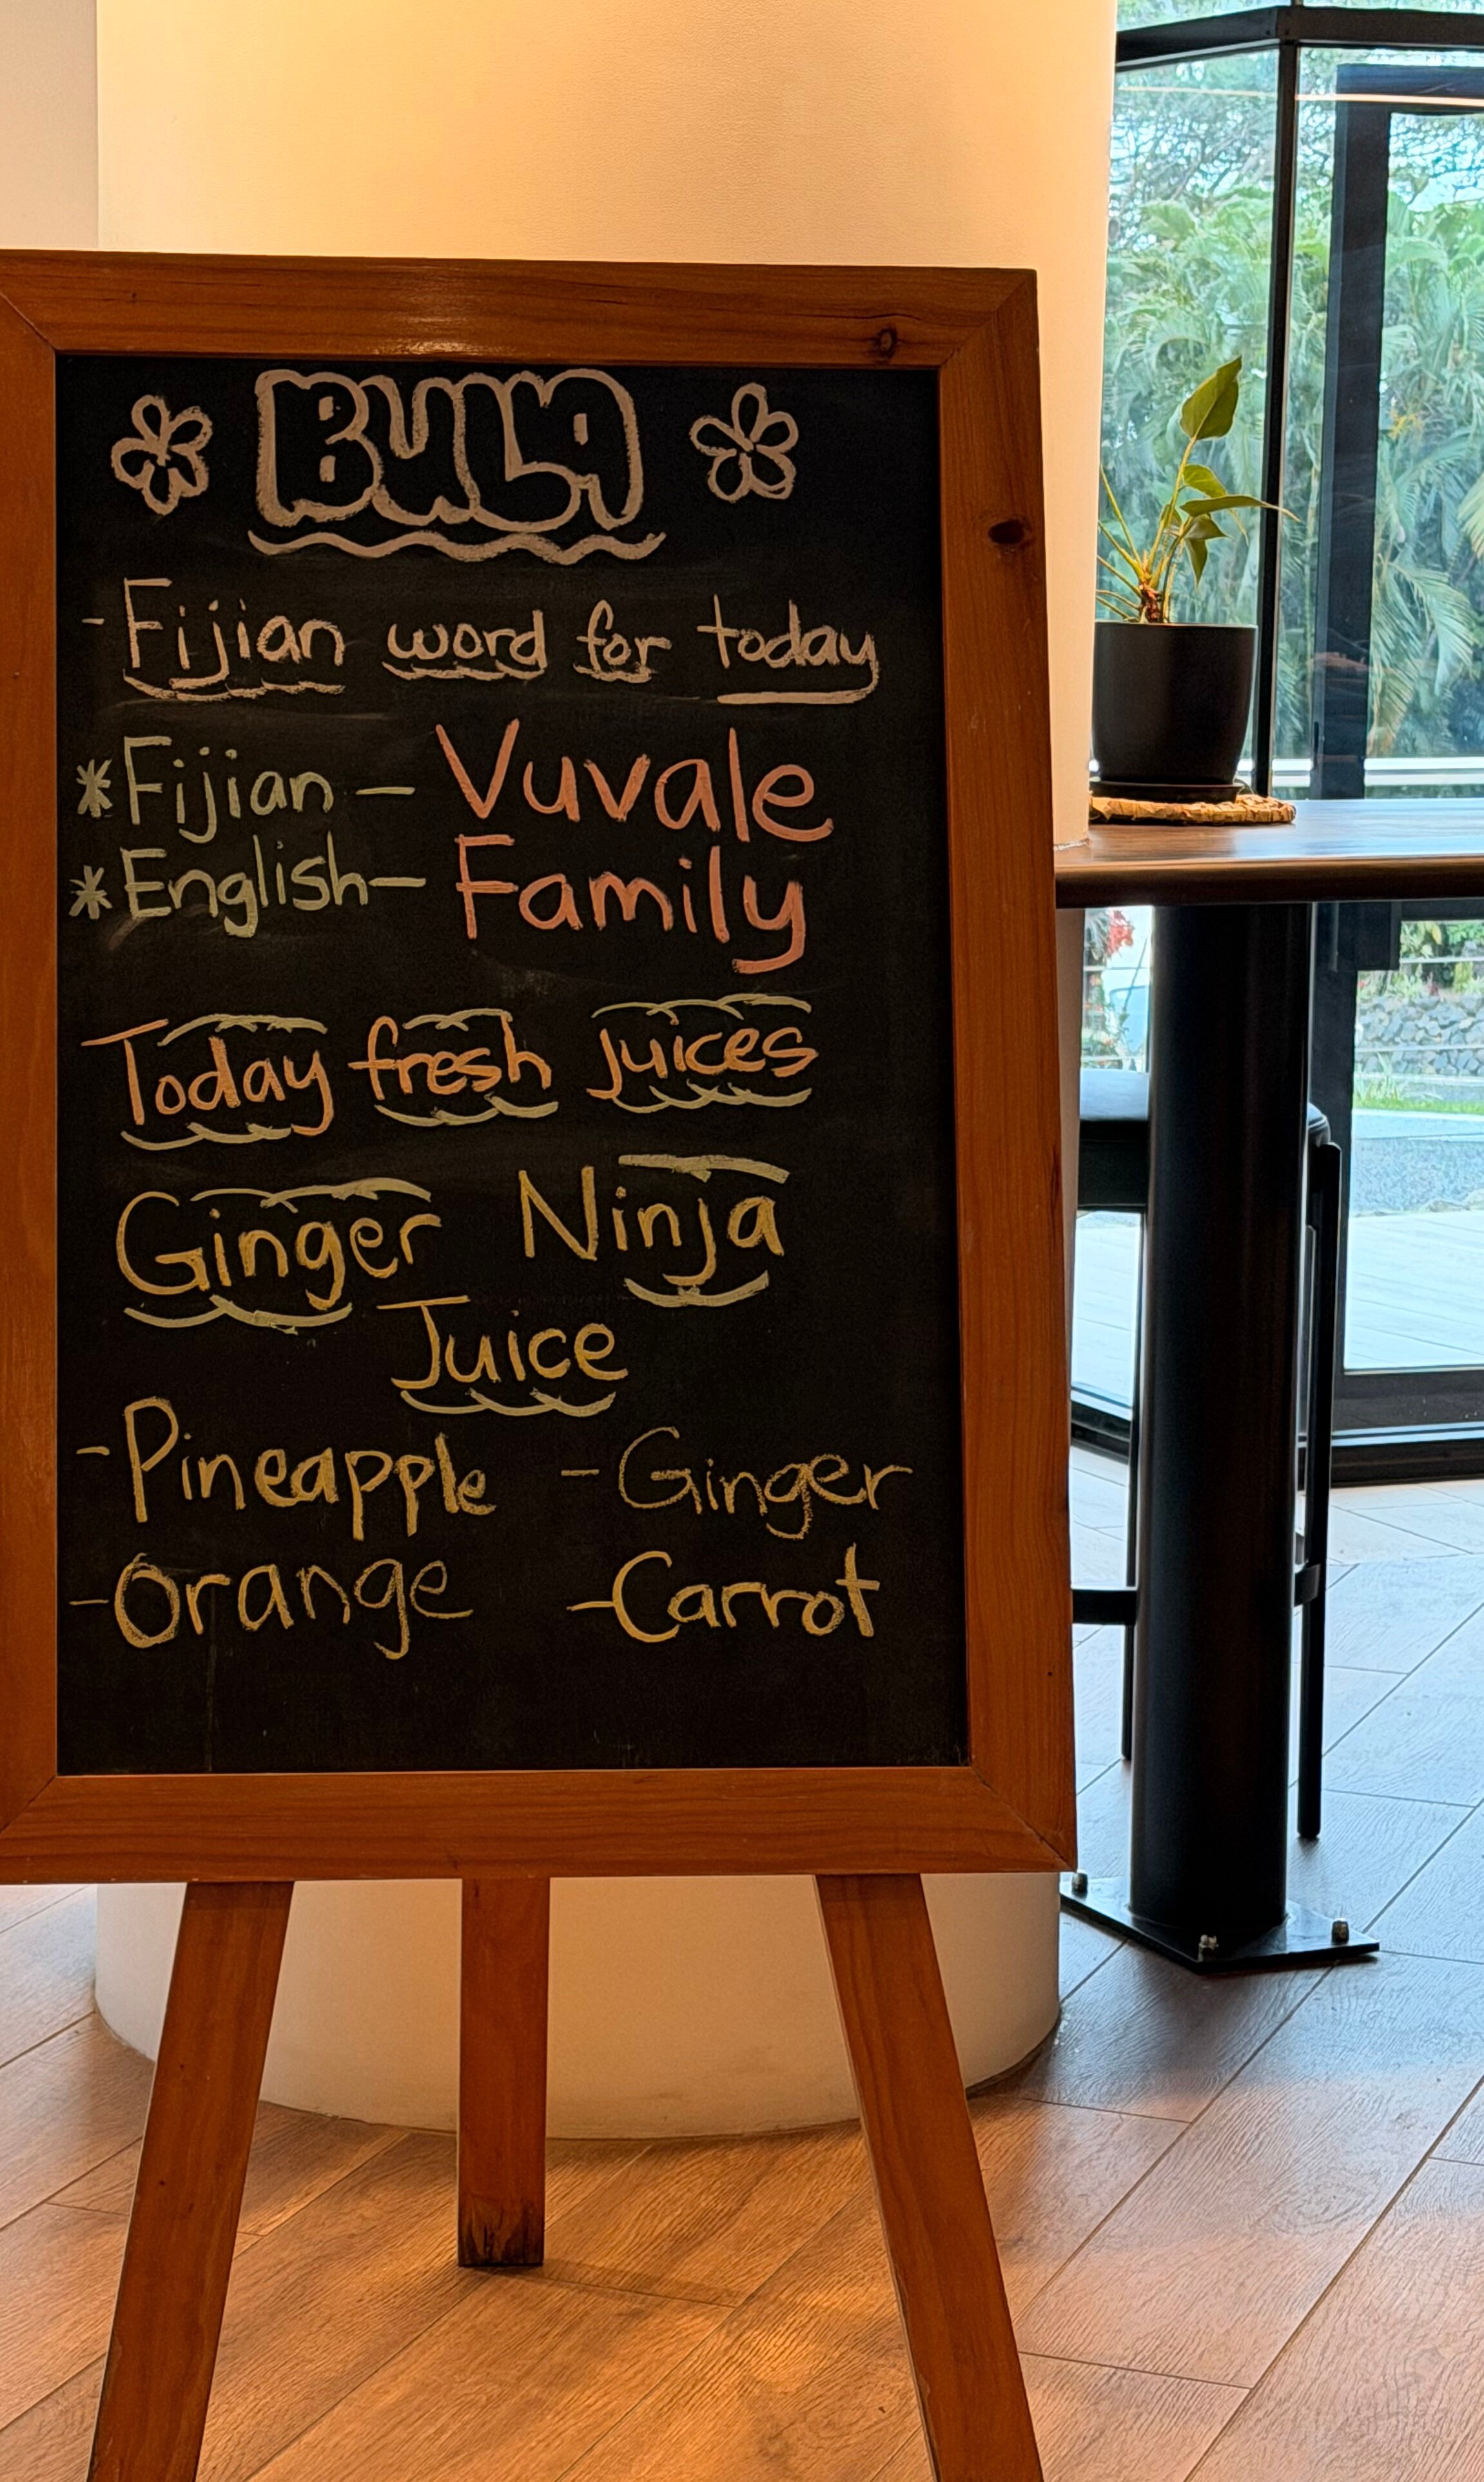 BULA
- Fijian word for today
* Fijian - Vuvale
* English - Family
Today fresh juices
Ginger Ninja
Juice
- Pineapple - Ginger
- Orange - Carrot